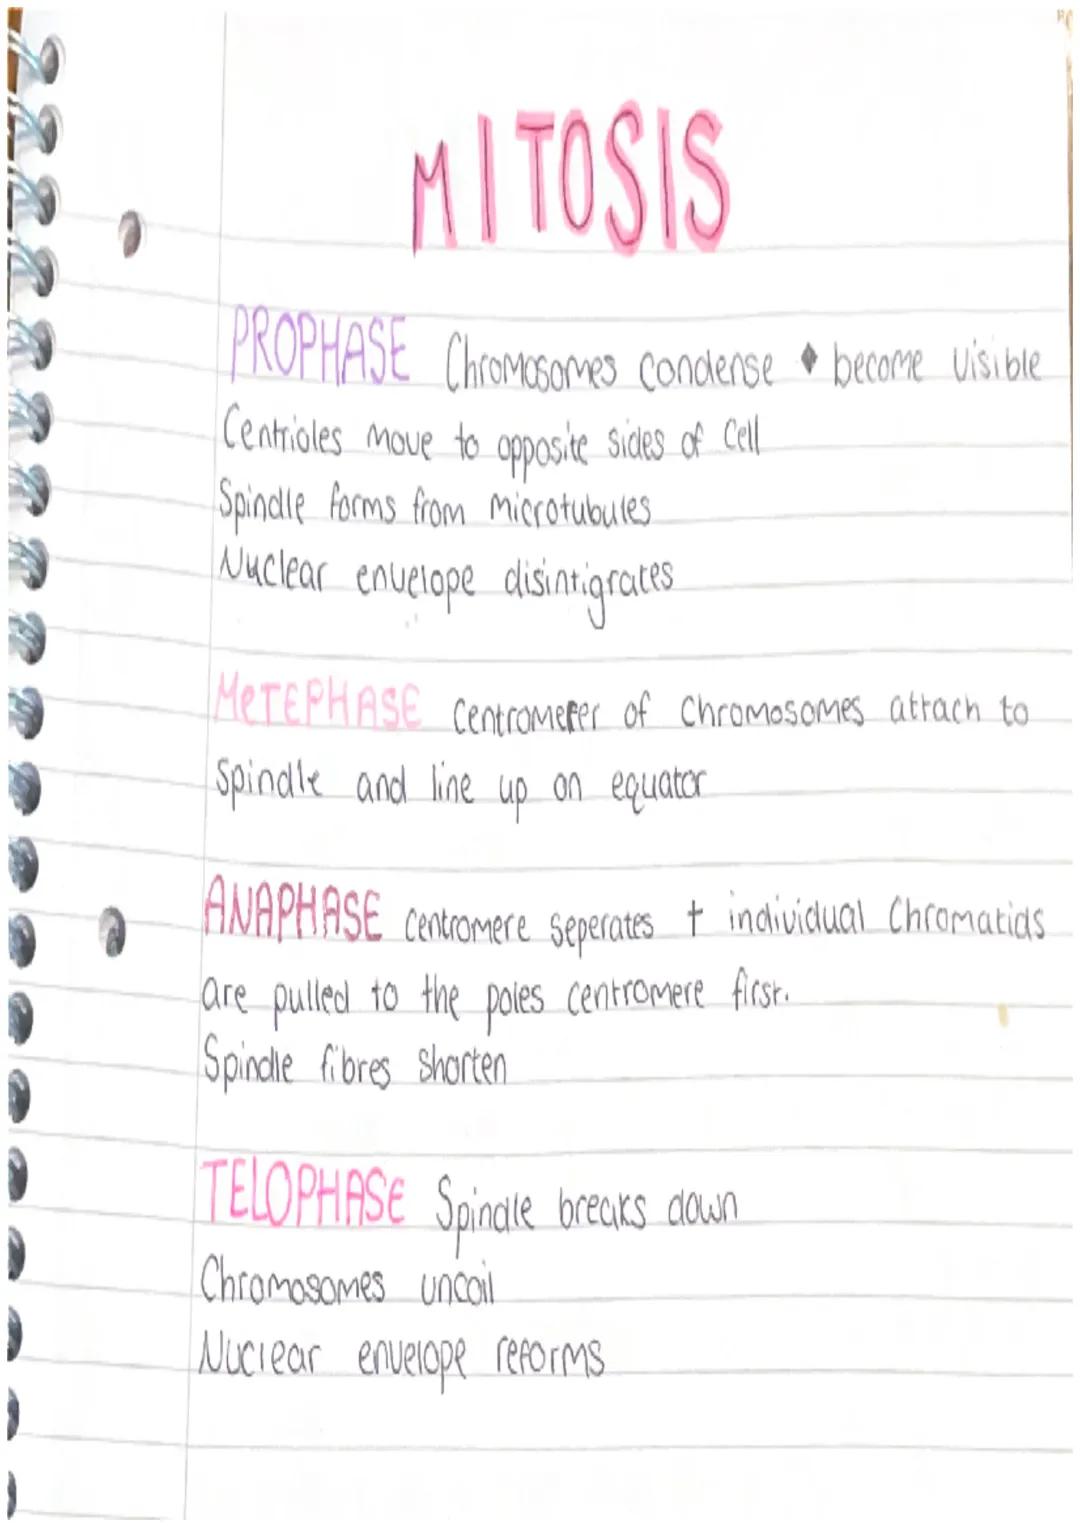 MITOSIS
PROPHASE Chromosomes condense + become visible
Centrioles move to opposite sides of cell
Spindle forms from microtubules
Nuclear envelope disintigrates
METEPHASE centromerer of chromosomes attach to
spindle and line up on equator
ANAPHASE centromere seperates + individual chromatids
are pulled to the poles centromere first.
Spindle fibres shorten
TELOPHASE Spindle breaks down
Chromosomes uncoil
Nuclear envelope reforms